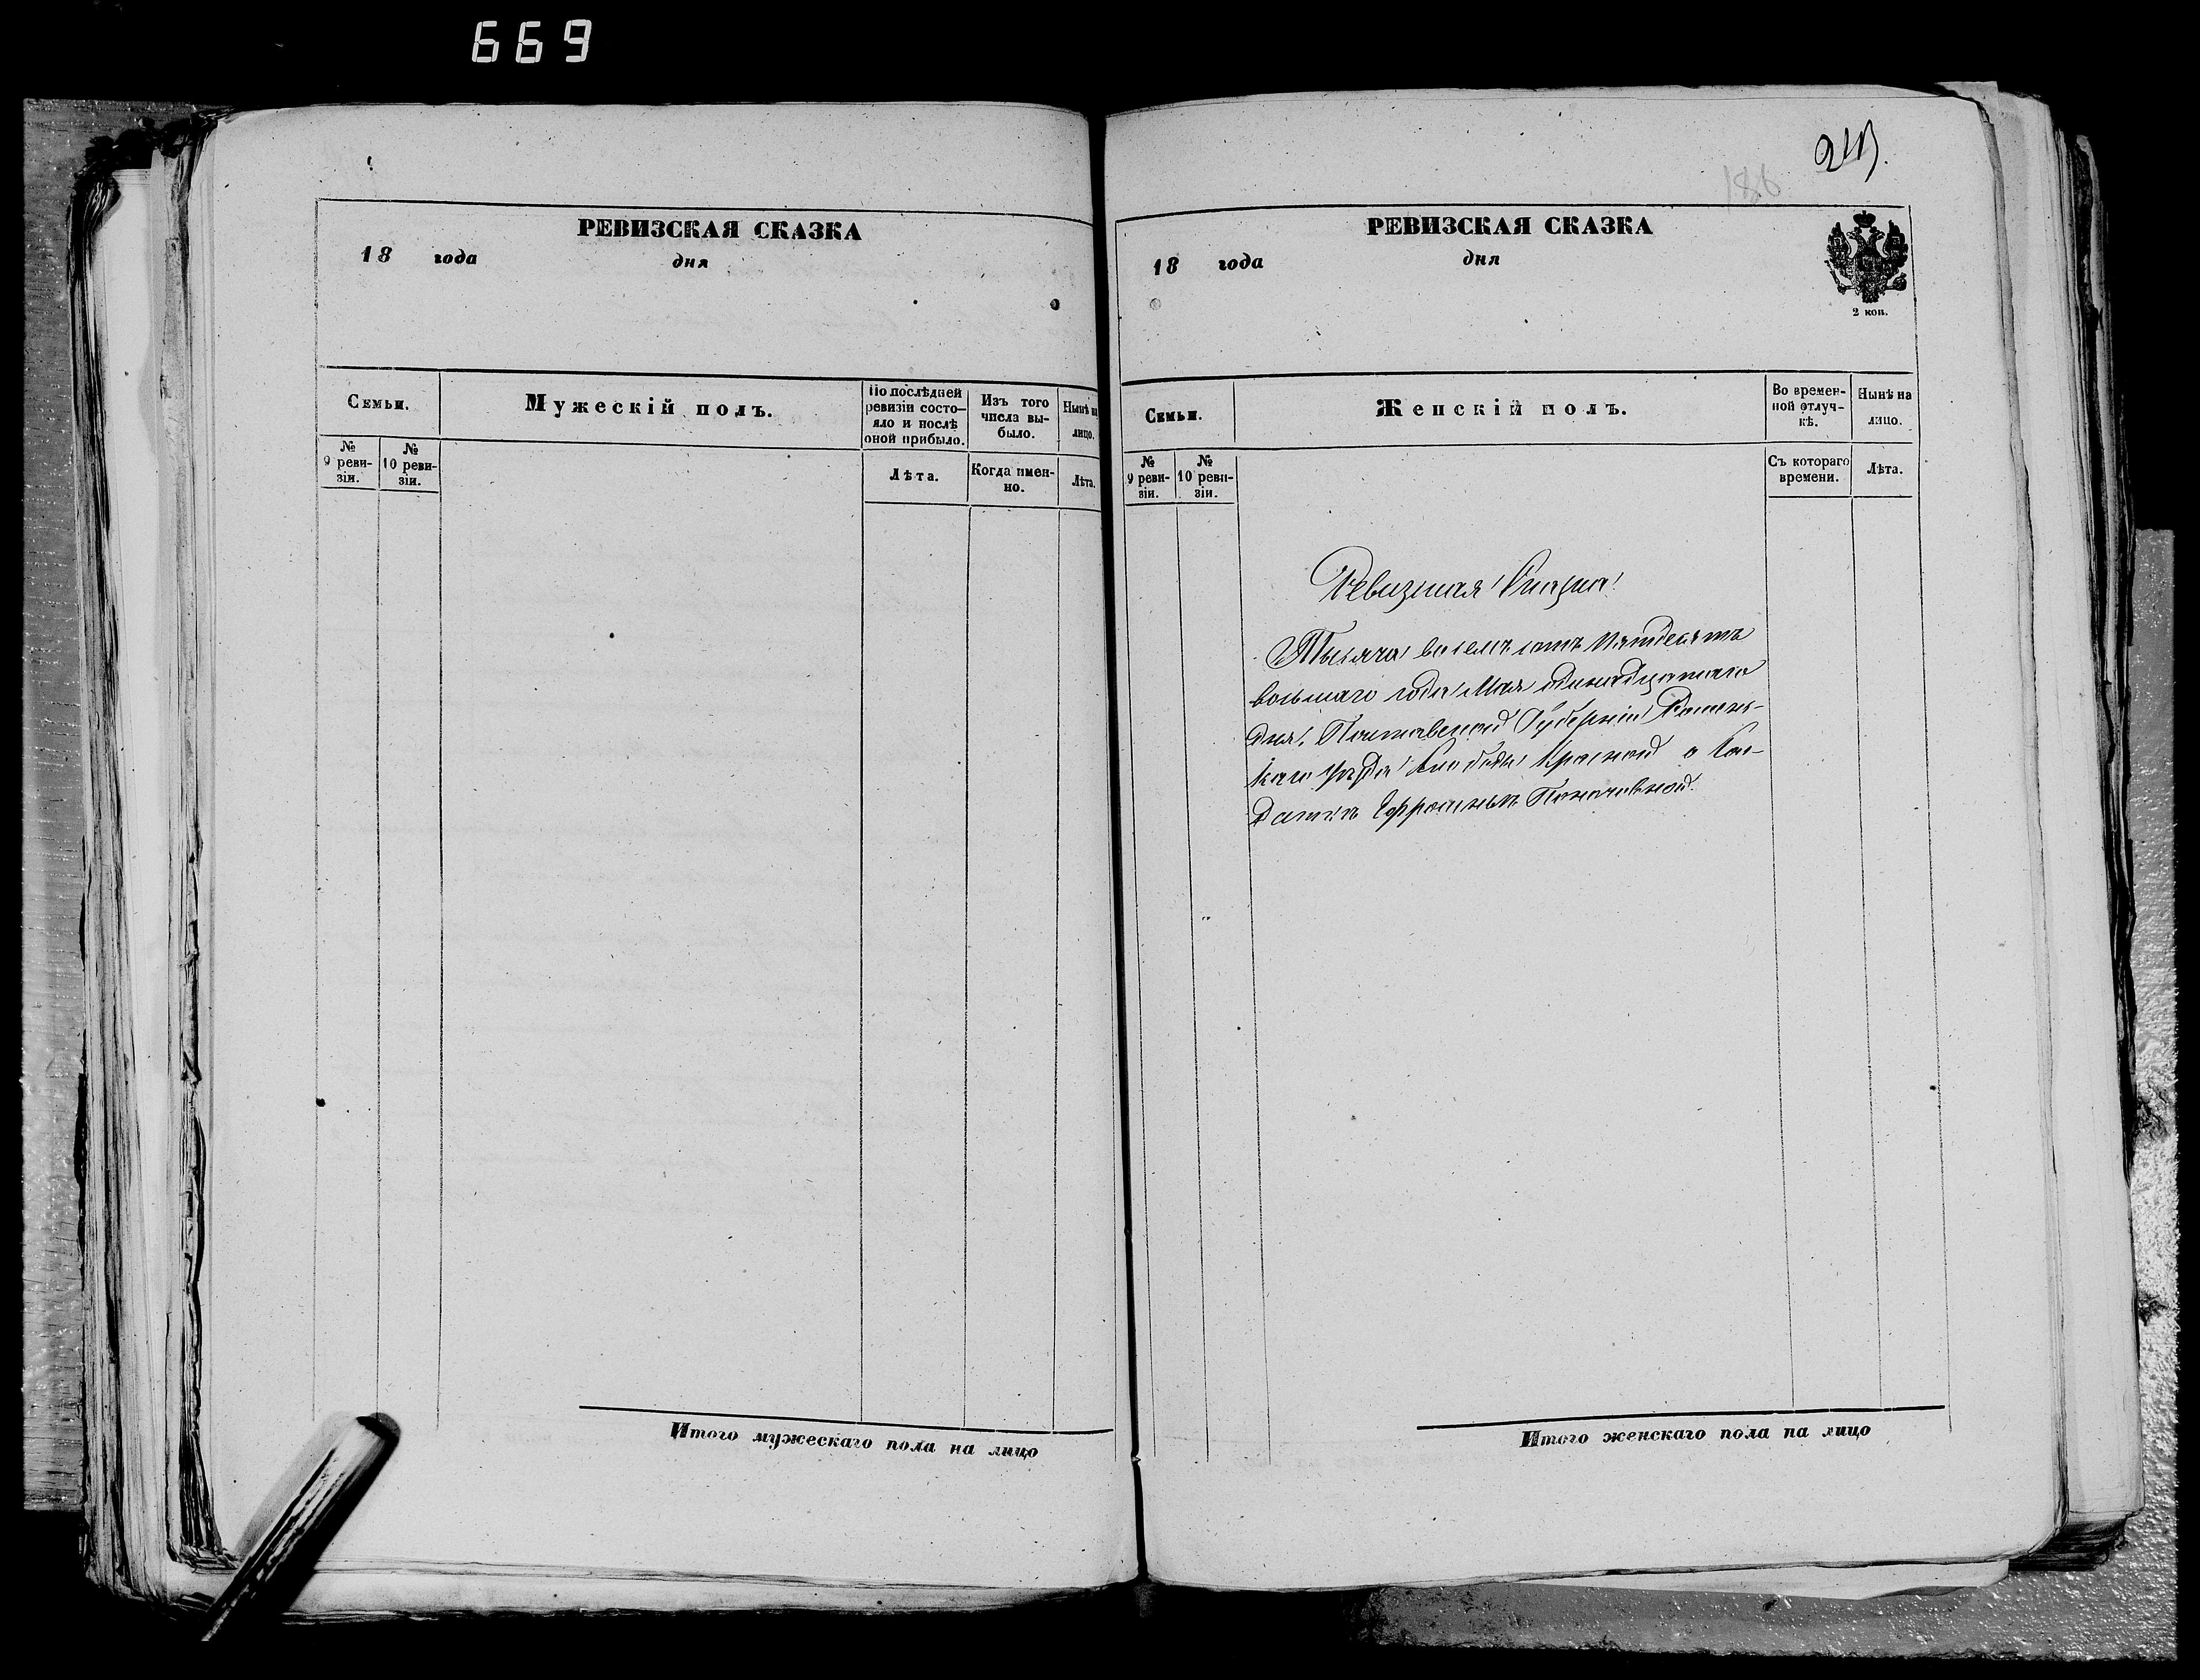 669
РЕВИЗСКАЯ СКАЗКА
18 года дня
Семьи.
Мужескій полъ.
По послѣдней ревизіи состо-
яло и послѣ оной прибыло.
Изъ того числа вы-
было.
Нынѣ на лицо.
№ 9 реви-
зіи.
№ 10 реви-
зіи.
Лѣта.
Когда имен-
но.
Лѣта.
Итого мужескаго пола на лицо
186
РЕВИЗСКАЯ СКАЗКА
18 года дня
2 коп.
Семьи.
Женскій полъ.
Во времен-
ной отлуч-
кѣ.
Нынѣ на
лицо.
№ 9 реви-
зіи.
№ 10 реви-
зіи.
Съ котораго
времени.
Лѣта.
Ревизская Сказка
Тысяча восемъ сотъ пятдесятъ
восьмаго года Мая одинадцатаго
дня, Полтавской Губерніи Ромен-
каго уѣзда Слободы Красной о Сол-
даткѣ
Итого женскаго пола на лицо